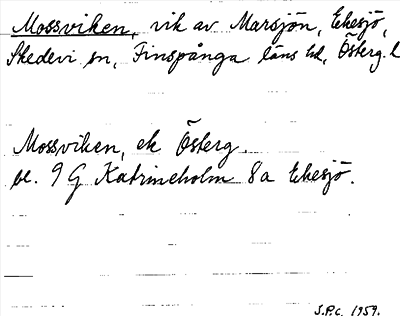 Mossviken, vik av Marsjön, Ekesjö,
Skedevi sn, Finspånga läns hd, Österg. l
Mossviken, ek Österg.
bl. 9 G Katrineholm 8a Ekesjö.
S.P.c. 1959.